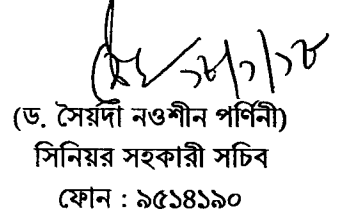 ১৮/১/১৮
(ড. সৈয়দা নওশীন পর্ণিনী)
সিনিয়র সহকারী সচিব
ফোন : ৯৫১৪১৯০